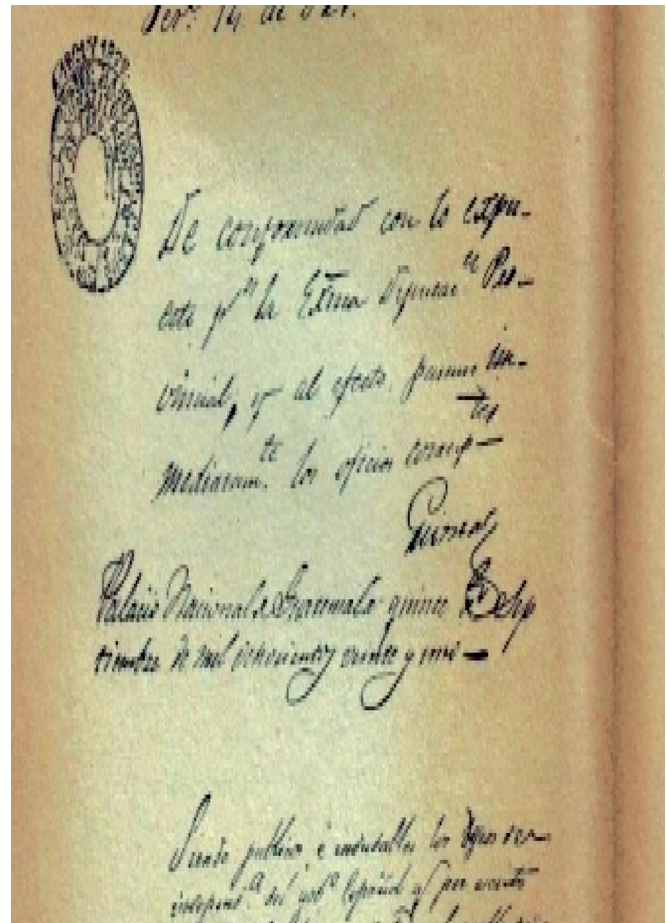 De conformidad con lo expu-
esto p.r la Exma Diputac.n Pro-
vincial, y al efecto pasense in-
mediatam.te los oficios corresp.tes
Palacio Nacional de Guatemala quince de Sep
tiembre de mil ochocientos veinte y uno —
Siendo publicos é indudables los deseos de
independ.a del gob.o Español q.e por escrito